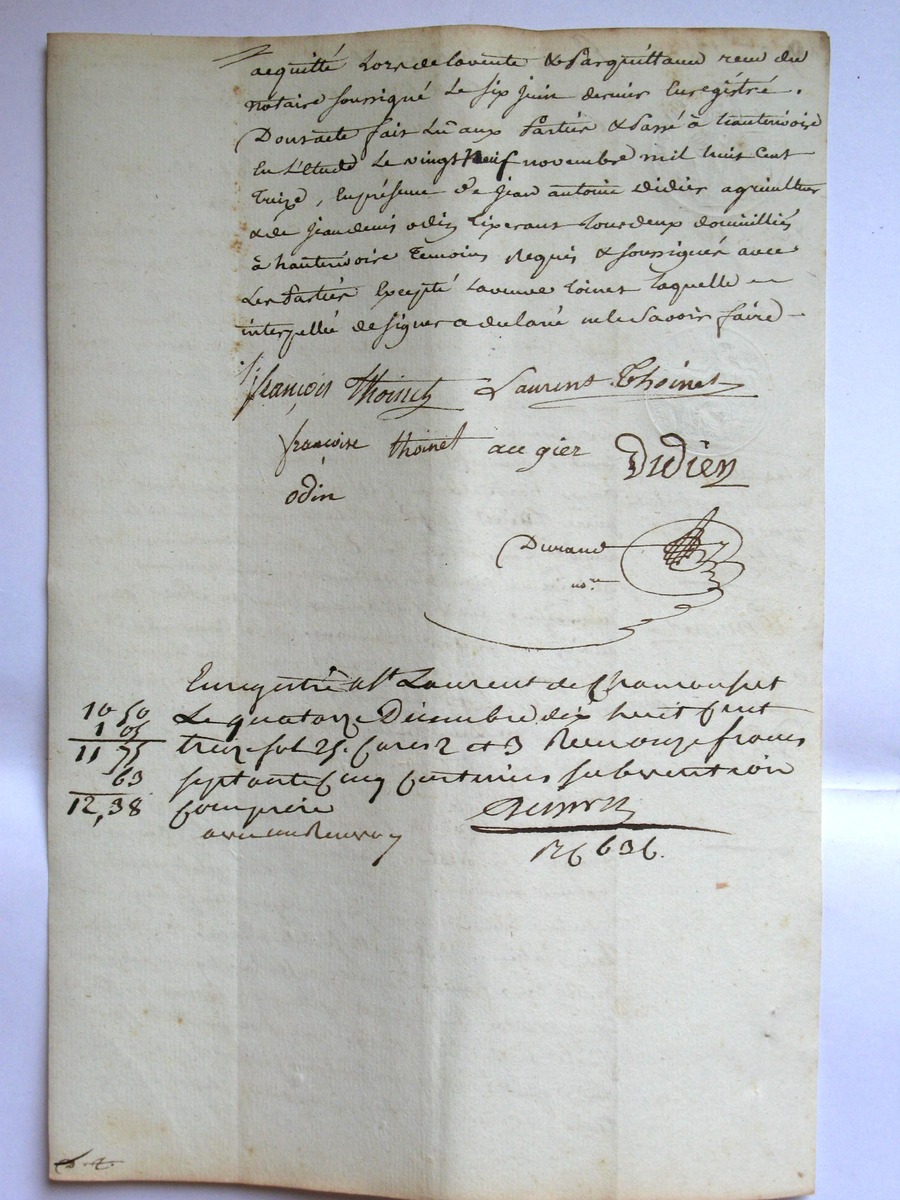 acquitté Lors de la vente & par quittance reçu du
notaire soussigné Le six juin dernier Enregistré.
Dont acte fait Lû aux Parties & Passé à hauterivoire
En L'Etude Le vingt neuf novembre mil huit cent
Treize, En présence de jean antoine didier agriculteur
& de jean denis odin Tixerant tous deux domicilliés
à hauterivoire Temoins Requis & soussignés avec
Les Parties Excepté La veuve Toinet Laquelle
interpellée de signer a declaré ne le savoir faire
françois thoinet Laurent Thoinet
françoise thoinet augier Didier
odin
Durand
nore
Enregistré à St Laurent de Chamousset
10 50 Le quatorze Décembre dix huit cent
1 05
11 75 treize fol 25. cases 2 et 3 Reçu onze francs
63 septante Cinq Centimes subvention
12,38 Comprise
636.